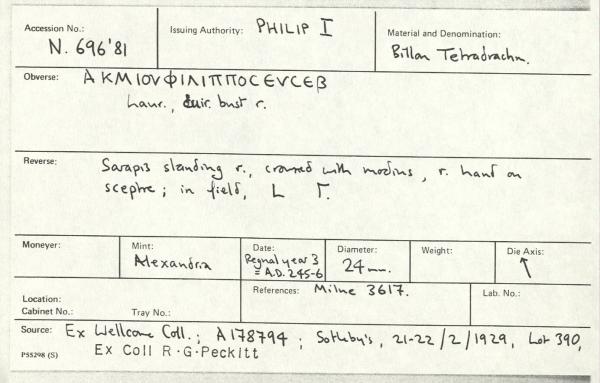 Accession No.:
N. 696'81
Issuing Authority: PHILIP I
Material and Denomination:
Billon Tetradrachm.
Obverse: Α Κ Μ ΙΟV ΦΙΛΙΠΠΟC ЄVCЄΒ
laur., cuir. bust r.
Reverse: Sarapis standing r., crowned with modius, r. hand on
sceptre; in field, L Γ.
Moneyer:
Mint:
Alexandria
Date:
Regnal year 3
= A.D. 245-6
Diameter:
24mm.
Weight:
Die Axis:
↖
Location:
Cabinet No.: Tray No.:
References: Milne 3617.
Lab. No.:
Source: Ex Wellcome Coll.; A178794; Sotheby's, 21-22/2/1929, Lot 390,
P55298 (S) Ex Coll R·G·Peckitt